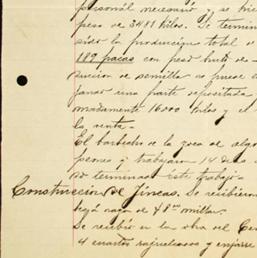 personal necesario y se hic
peso de 3481 kilos. Se termin
sido la producción total d
189 pacas con peso bruto de
ducción de semilla no puede
una parte depositada
madamente 16000 kilos y el
la venta.
El barbecho de la zoca de algo
peones y trabajaron 14 de
terminar este trabajo.
Construcción de Fincas. Se recibieron
de 4 millar.
Se recibió en la obra del Cen
4 cuartos y enjarre